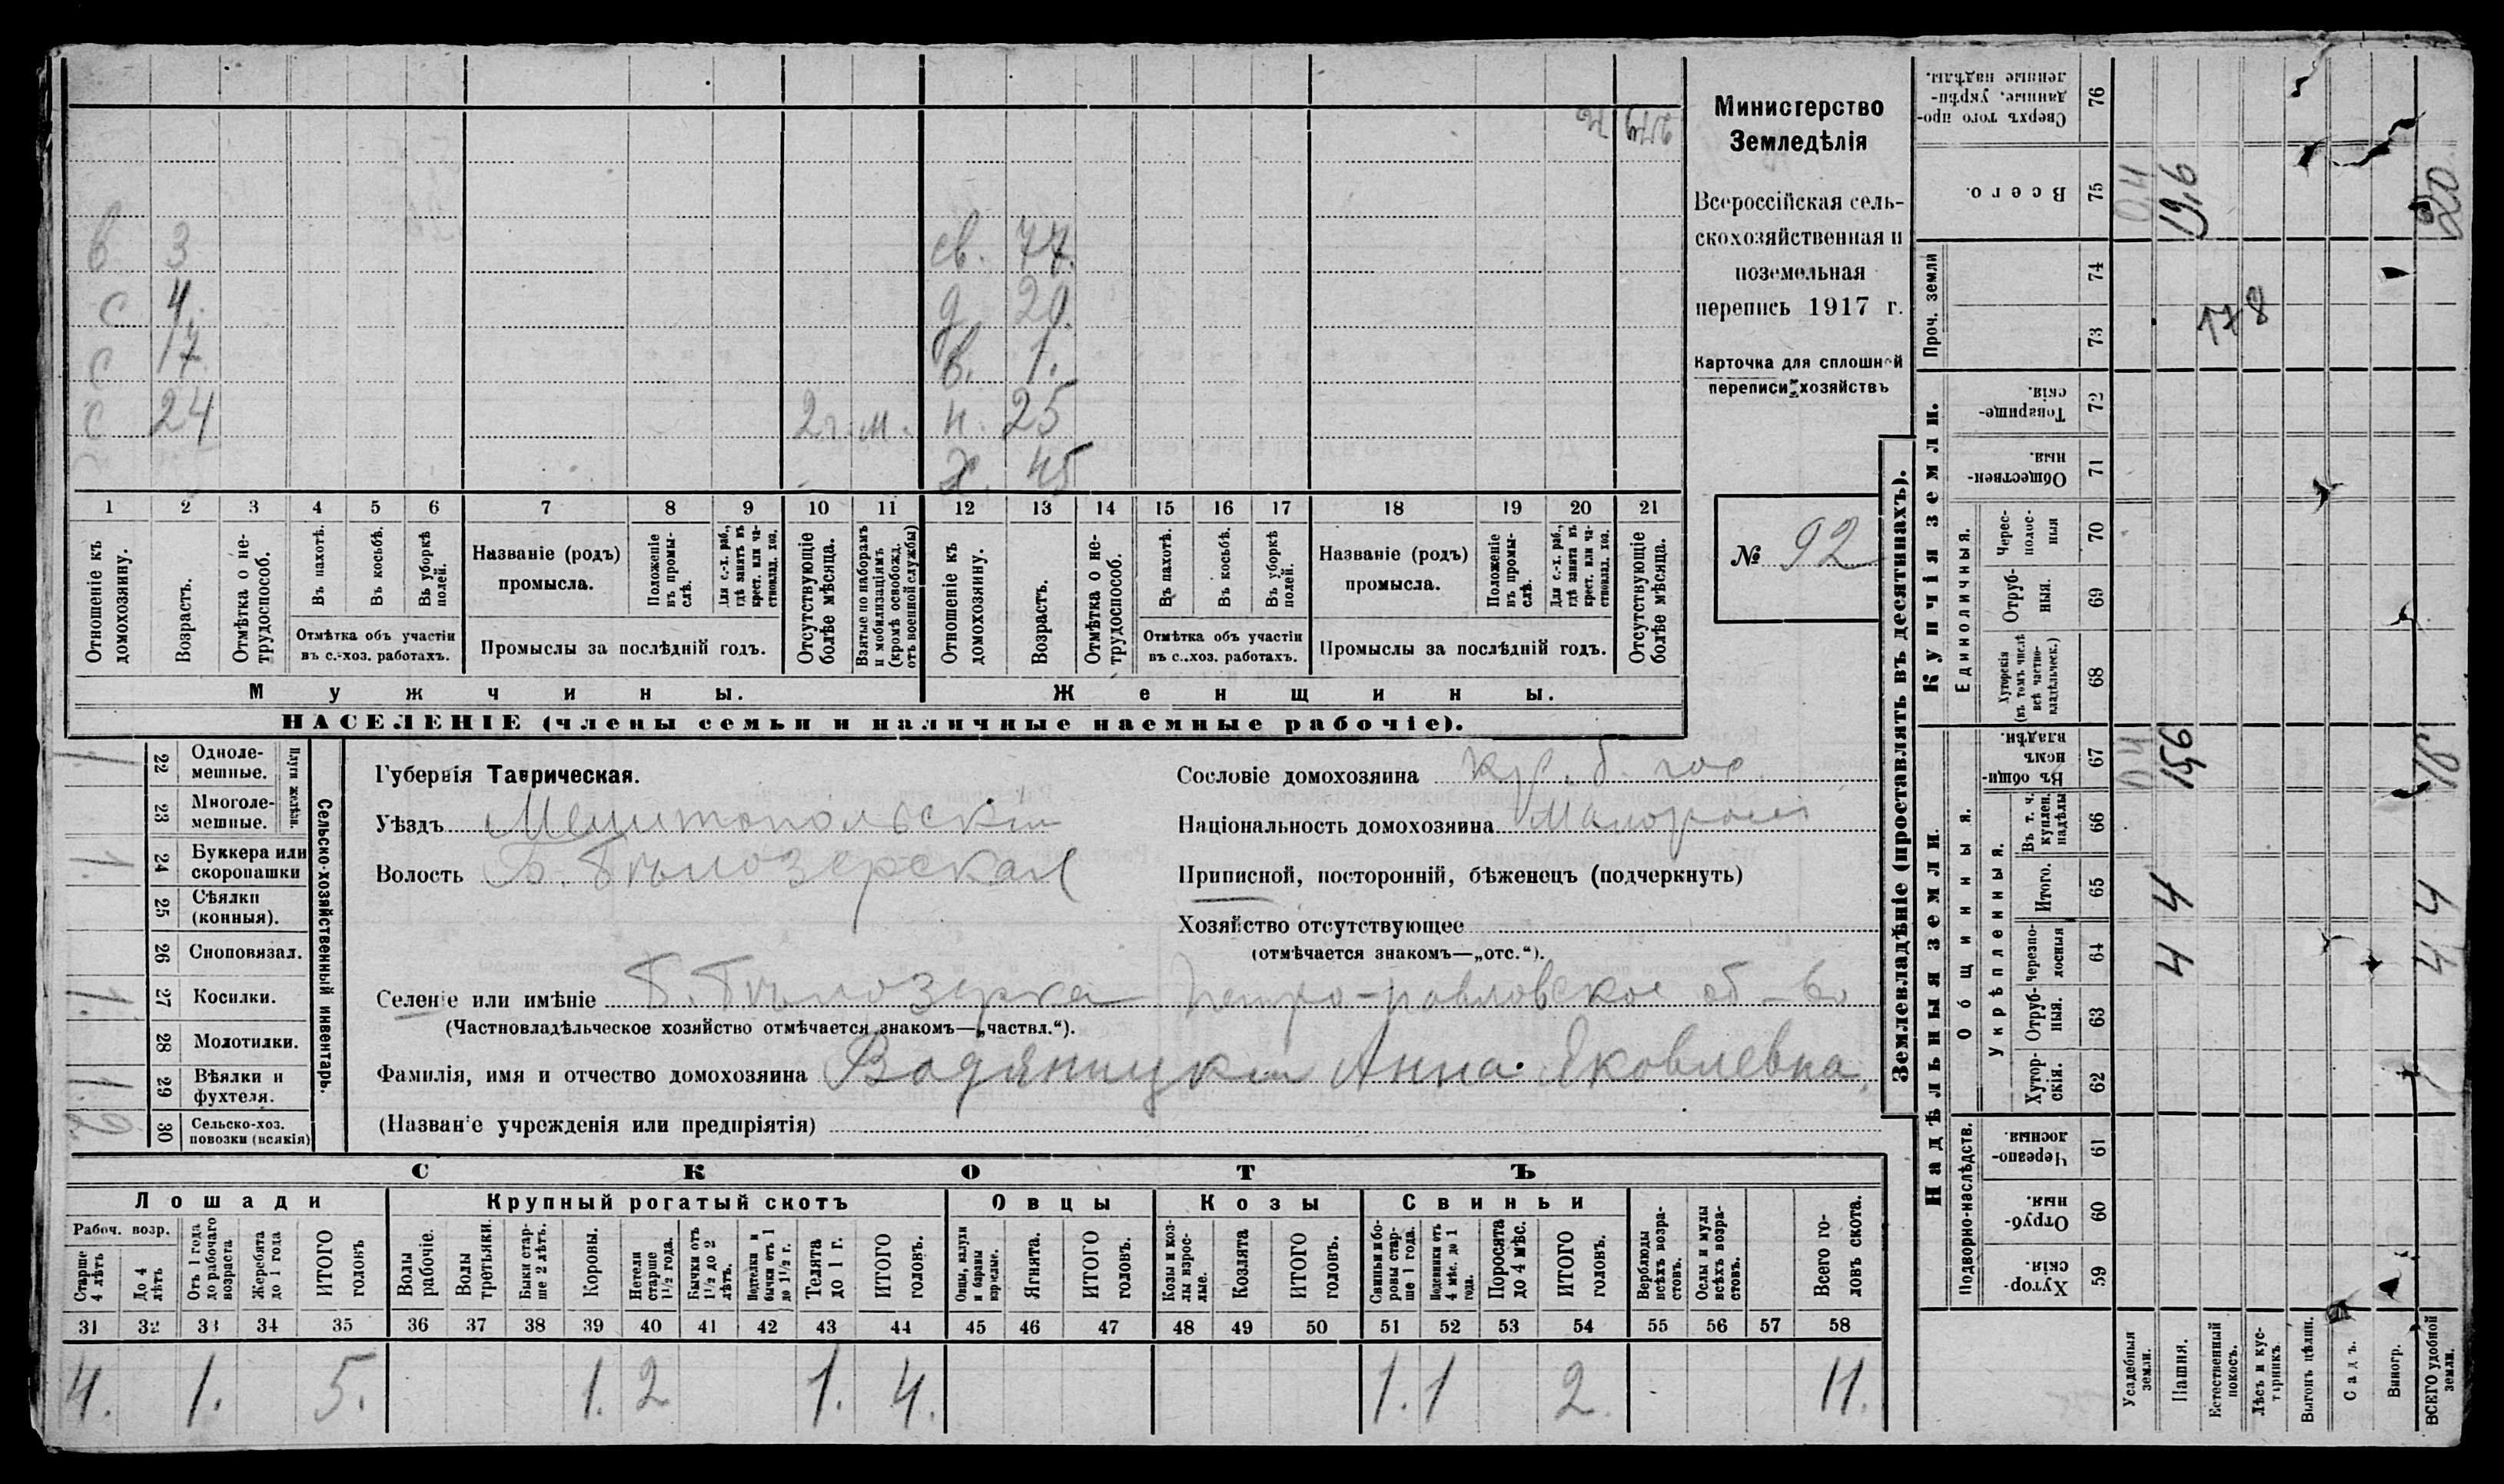 Министерство
Земледѣлія
Всероссійская сель-
скохозяйственная и
поземельная
перепись 1917 г.
Карточка для сплошной
переписи хозяйствъ
№ 92
в 3 св. 77.
с 4. д. 20.
с 17. в. 1.
с 24 2 г. м. н. 25
х. 45
1 2 3 4 5 6 7 8 9 10 11 12 13 14 15 16 17 18 19 20 21
Отношеніе къ домохозяину.
Возрастъ.
Отмѣтка о не-трудоспособ.
Въ пахотѣ.
Въ косьбѣ.
Въ уборкѣ полей.
Отмѣтка объ участіи
въ с.-хоз. работахъ.
Названіе (родъ)
промысла.
Положеніе въ промы-слѣ.
Для с.-х. раб., гдѣ занятъ въ крест. или ча-стновлад. хоз.
Промыслы за послѣдній годъ.
Отсутствующіе болѣе мѣсяца.
Взятые по наборамъ и мобилизаціямъ (кромѣ освобожд. отъ военной службы)
Отношеніе къ домохозяину.
Возрастъ.
Отмѣтка о не-трудоспособ.
Въ пахотѣ.
Въ косьбѣ.
Въ уборкѣ полей.
Отмѣтка объ участіи
въ с.-хоз. работахъ.
Названіе (родъ)
промысла.
Положеніе въ промы-слѣ.
Для с.-х. раб., гдѣ занята въ крест. или ча-стновлад. хоз.
Промыслы за послѣдній годъ.
Отсутствующіе болѣе мѣсяца.
Мужчины. Женщины.
НАСЕЛЕНІЕ (члены семьи и наличные наемные рабочіе).
Сельско-хозяйственный инвентарь.
Плуги желѣзн.
1. 22 Одноле-мешные.
23 Многоле-мешные.
1. 24 Буккера или скоропашки
25 Сѣялки (конныя).
26 Сноповязал.
1. 27 Косилки.
28 Молотилки.
1. 29 Вѣялки и фухтеля.
2. 30 Сельско-хоз. повозки (всякія)
Губернія Таврическая.
Уѣздъ Мелитопольскій
Волость Б. Бѣлозерская
Сословіе домохозяина кр. б. гос.
Національность домохозяина Малоросс
Приписной, посторонній, бѣженецъ (подчеркнуть)
Хозяйство отсутствующее
(отмѣчается знакомъ—„отс.“).
Селеніе или имѣніе Б. Бѣлозерка Петро-павловское об-во
(Частновладѣльческое хозяйство отмѣчается знакомъ—„частвл.“).
Фамилія, имя и отчество домохозяина Анна Яковлевна.
(Названіе учрежденія или предпріятія)
СКОТЪ
Лошади Крупный рогатый скотъ Овцы Козы Свиньи
Рабоч. возр.
Старше 4 лѣтъ
До 4 лѣтъ
Отъ 1 года до рабочаго возраста
Жеребята до 1 года
ИТОГО головъ
Волы рабочіе.
Волы третьяки.
Быки стар-ше 2 лѣтъ.
Коровы.
Нетели старше 1½ года.
Бычки отъ 1½ до 2 лѣтъ.
Нетелки и бычки отъ 1 до 1½ г.
Телята до 1 г.
ИТОГО головъ.
Овцы, валухи и бараны взрослые.
Ягнята.
ИТОГО головъ.
Козы и коз-лы взрос-лые.
Козлята
ИТОГО головъ.
Свиньи и бо-ровы стар-ше 1 года.
Подсвинки отъ 4 мѣс. до 1 года.
Поросята до 4 мѣс.
ИТОГО головъ.
Верблюды всѣхъ возра-стовъ.
Ослы и мулы всѣхъ возра-стовъ.
Всего го-ловъ скота.
31 32 33 34 35 36 37 38 39 40 41 42 43 44 45 46 47 48 49 50 51 52 53 54 55 56 57 58
4. 1. 5. 1. 2 1. 4. 1. 1 2. 11.
Землевладѣніе (проставлять въ десятинахъ).
Сверхъ того про-данные, укрѣп-ленные надѣлы. 76
Всего. 75 0,4 19,6 20
Проч. земли 74 73
178
Купчія земли.
Товарище-скія. 72
Обществен-ныя. 71
Единоличныя.
Черес-полос-ныя 70
Отруб-ныя. 69
Хуторскія (въ томъ числѣ всѣ частно-владѣльческ.) 68
Надѣльныя земли.
Общинныя.
Въ общи-номъ владѣн. 67 0,4 15,6 16
Укрѣпленныя.
Въ т. ч. куплен. надѣлы 66
Итого. 65 4 4
Черезпо-лосныя 64 4 4
Отруб-ныя. 63
Хутор-скія. 62
Подворно-наслѣдств.
Черезпо-лосныя. 61
Отруб-ныя. 60
Хутор-скія. 59
Усадебныя земли.
Пашня.
Естественный покосъ.
Лѣсъ и кус-тарникъ.
Выгонъ цѣлин.
Садъ.
Виногр.
ВСЕГО удобной земли.